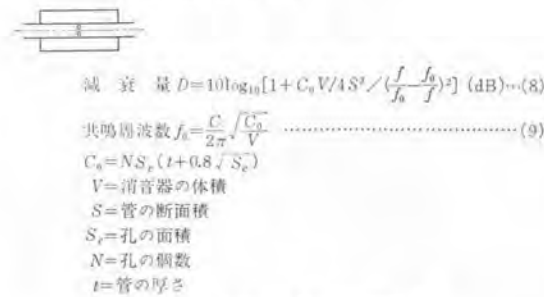 減衰量 D=10log₁₀[1+C₀V/4S²/(f/f₀-f₀/f)²] (dB)…(8)
共鳴周波数 f₀=C/2π√C₀/V ……………………………(9)
C₀=NSₑ(t+0.8√Sₑ)
V=消音器の体積
S=管の断面積
Sₑ=孔の面積
N=孔の個数
t=管の厚さ